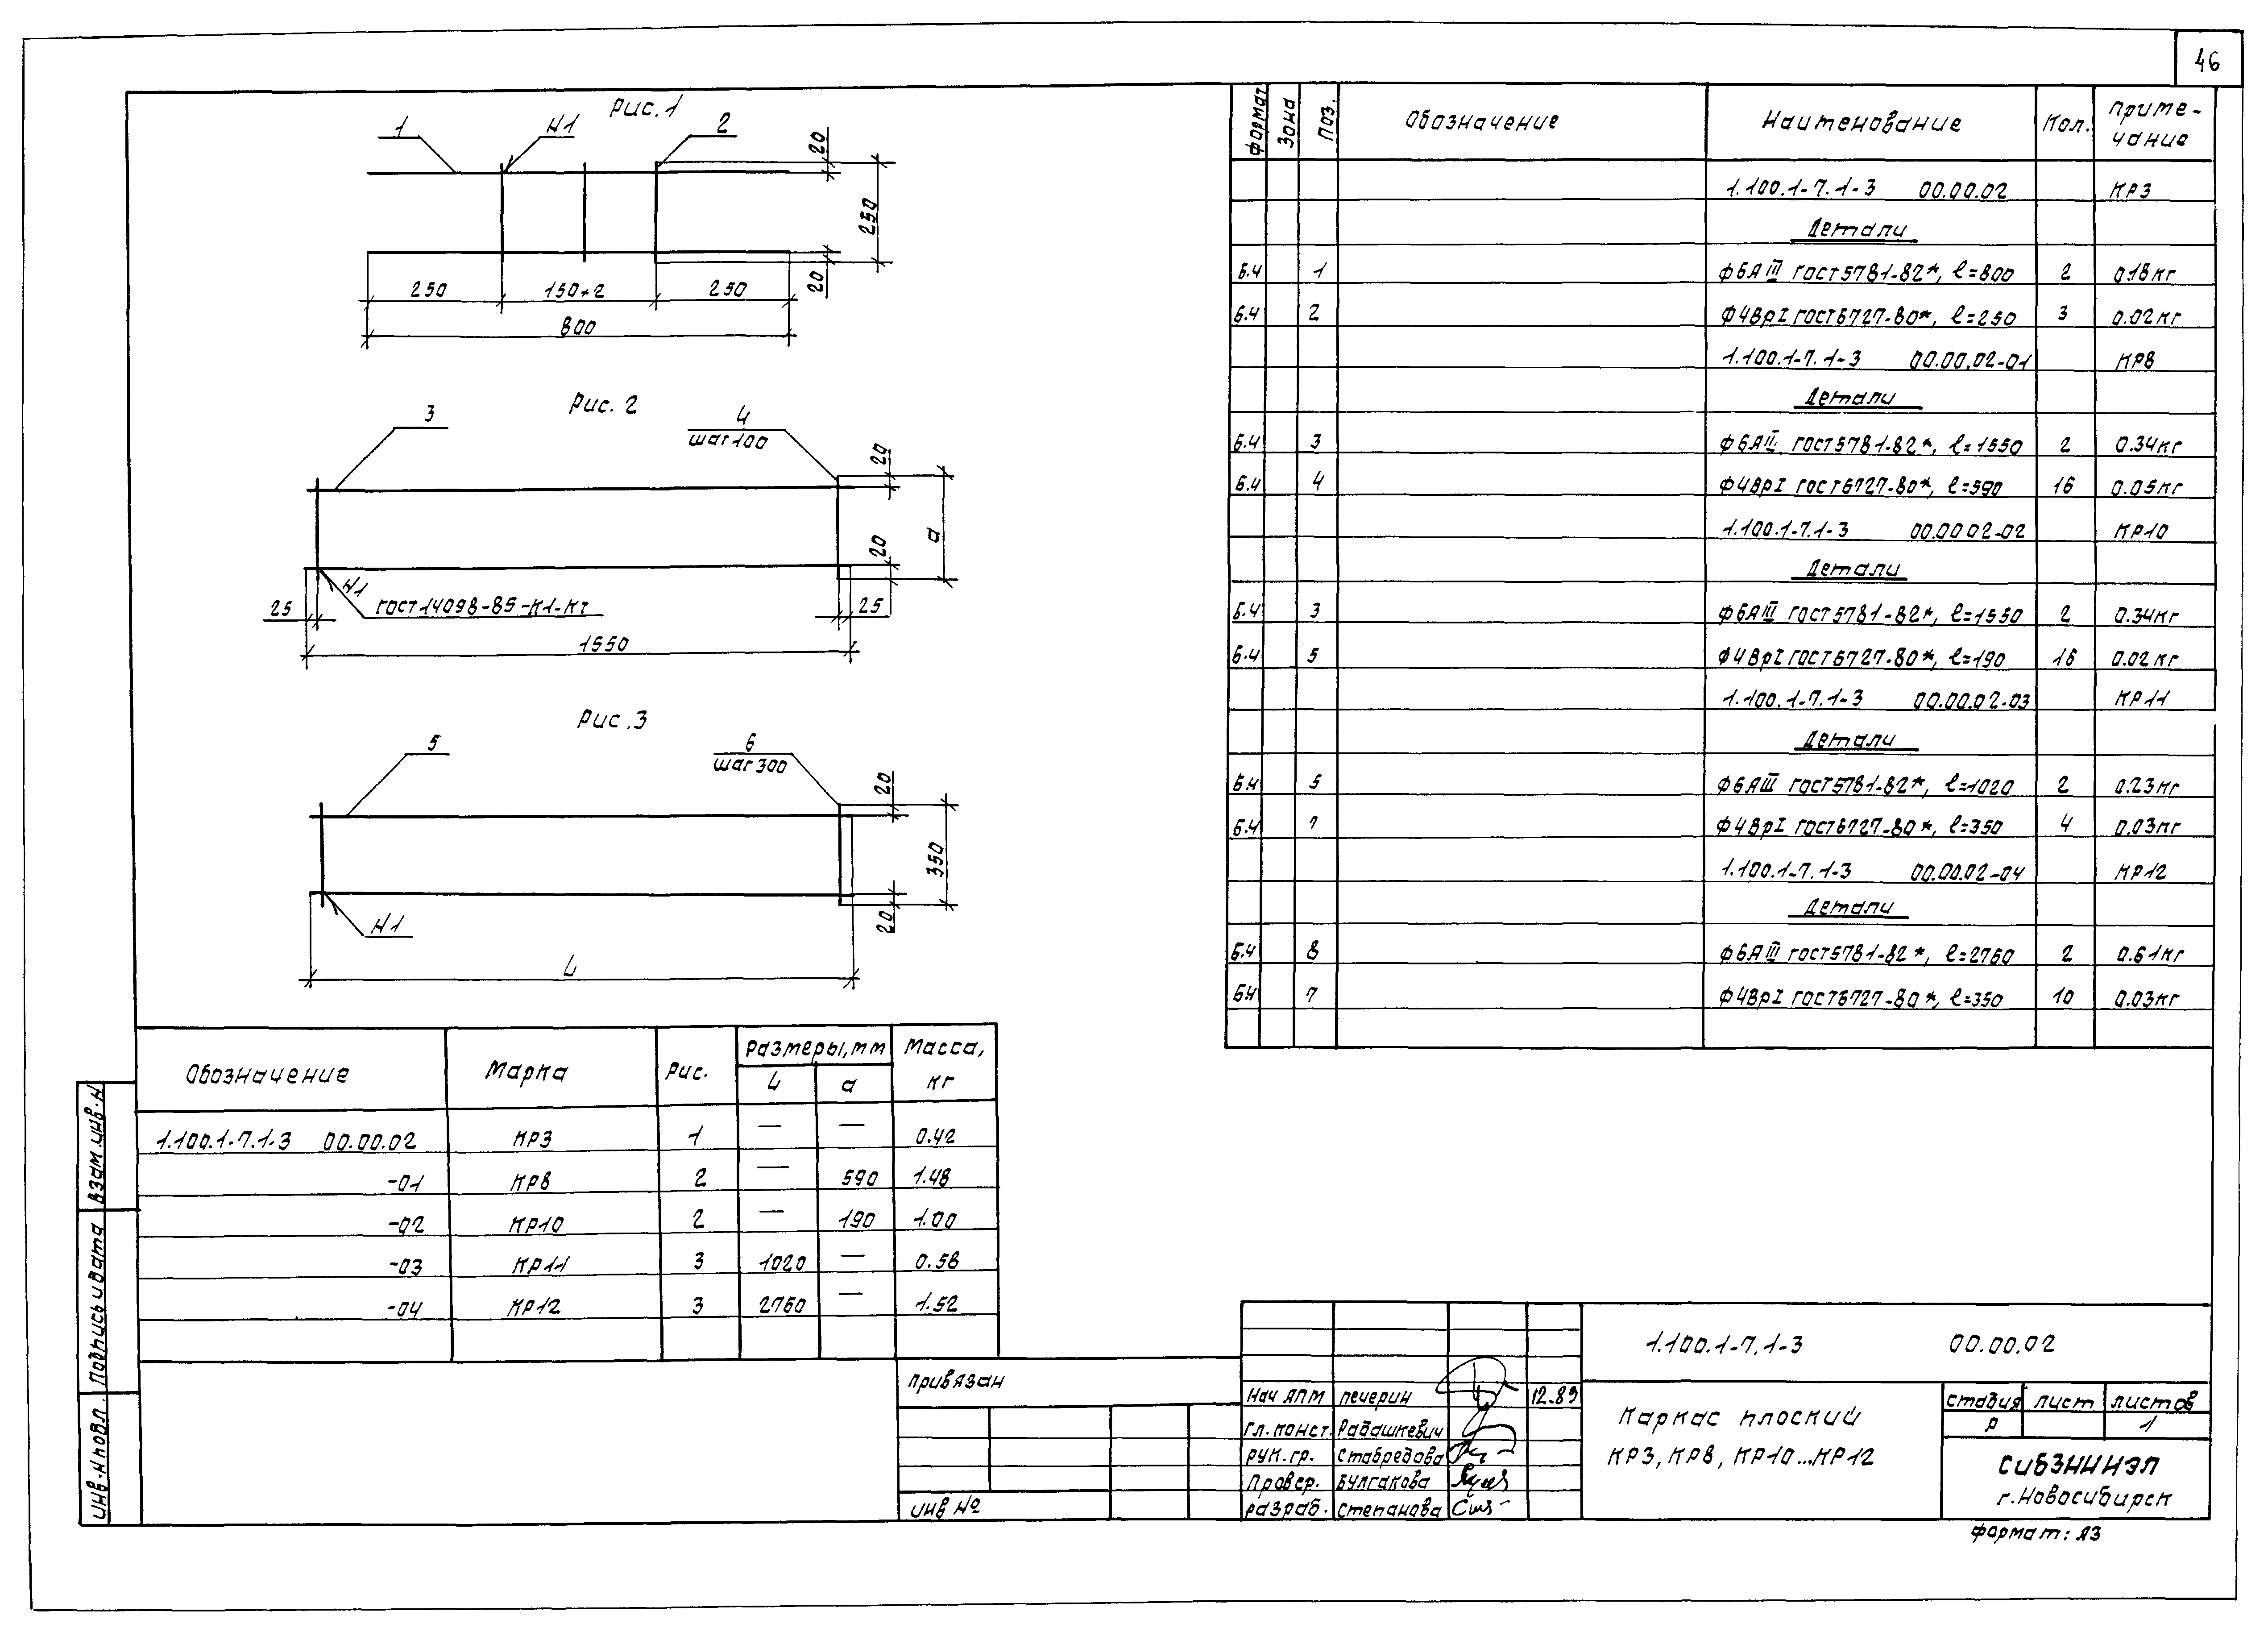 46
Рис. 1
1
Н1
2
20
250
20
250
150×2
250
800
Рис. 2
3
4
шаг 100
20
а
20
Н1
ГОСТ 14098-85-К1-Кт
25
25
1550
Рис. 3
5
6
шаг 300
20
350
20
Н1
L
Формат
Зона
Поз.
Обозначение
Наименование
Кол.
Приме-
чание
1.100.1-7.1-3 00.00.02 КР3
Детали
Б.Ч 1 ф6АIII ГОСТ 5781-82*, ℓ=800 2 0.18кг
Б.Ч 2 ф4ВрI ГОСТ 6727-80*, ℓ=250 3 0.02кг
1.100.1-7.1-3 00.00.02-01 КР8
Детали
Б.Ч 3 ф6АIII ГОСТ 5781-82*, ℓ=1550 2 0.34кг
Б.Ч 4 ф4ВрI ГОСТ 6727-80*, ℓ=590 16 0.05кг
1.100.1-7.1-3 00.00 02-02 КР10
Детали
Б.Ч 3 ф6АIII ГОСТ 5781-82*, ℓ=1550 2 0.34кг
Б.Ч 5 ф4ВрI ГОСТ 6727-80*, ℓ=190 16 0.02кг
1.100.1-7.1-3 00.00.02-03 КР11
Детали
Б.Ч 5 ф6АIII ГОСТ 5781-82*, ℓ=1020 2 0.23кг
Б.Ч 7 ф4ВрI ГОСТ 6727-80*, ℓ=350 4 0.03кг
1.100.1-7.1-3 00.00.02-04 КР12
Детали
Б.Ч 8 ф6АIII ГОСТ 5781-82*, ℓ=2760 2 0.61кг
БЧ 7 ф4ВрI ГОСТ 6727-80*, ℓ=350 10 0.03кг
Обозначение
Марка
Рис.
Размеры, мм
L а
Масса,
кг
1.100.1-7.1-3 00.00.02 КР3 1 — — 0.42
-01 КР8 2 — 590 1.48
-02 КР10 2 — 190 1.00
-03 КР11 3 1020 — 0.58
-04 КР12 3 2760 — 1.52
Взам.инв.н
Подпись и дата
Инв.н подл.
Привязан
Инв №
Нач АПМ Печерин 12.89
Гл.конст. Рабашкевич
Рук.гр. Ставредова
Провер. Булгакова
Разраб. Степанова
1.100.1-7.1-3 00.00.02
Каркас плоский
КР3, КР8, КР10...КР12
Стадия Лист Листов
Р 1
СибЗНИИЭП
г. Новосибирск
Формат: А3